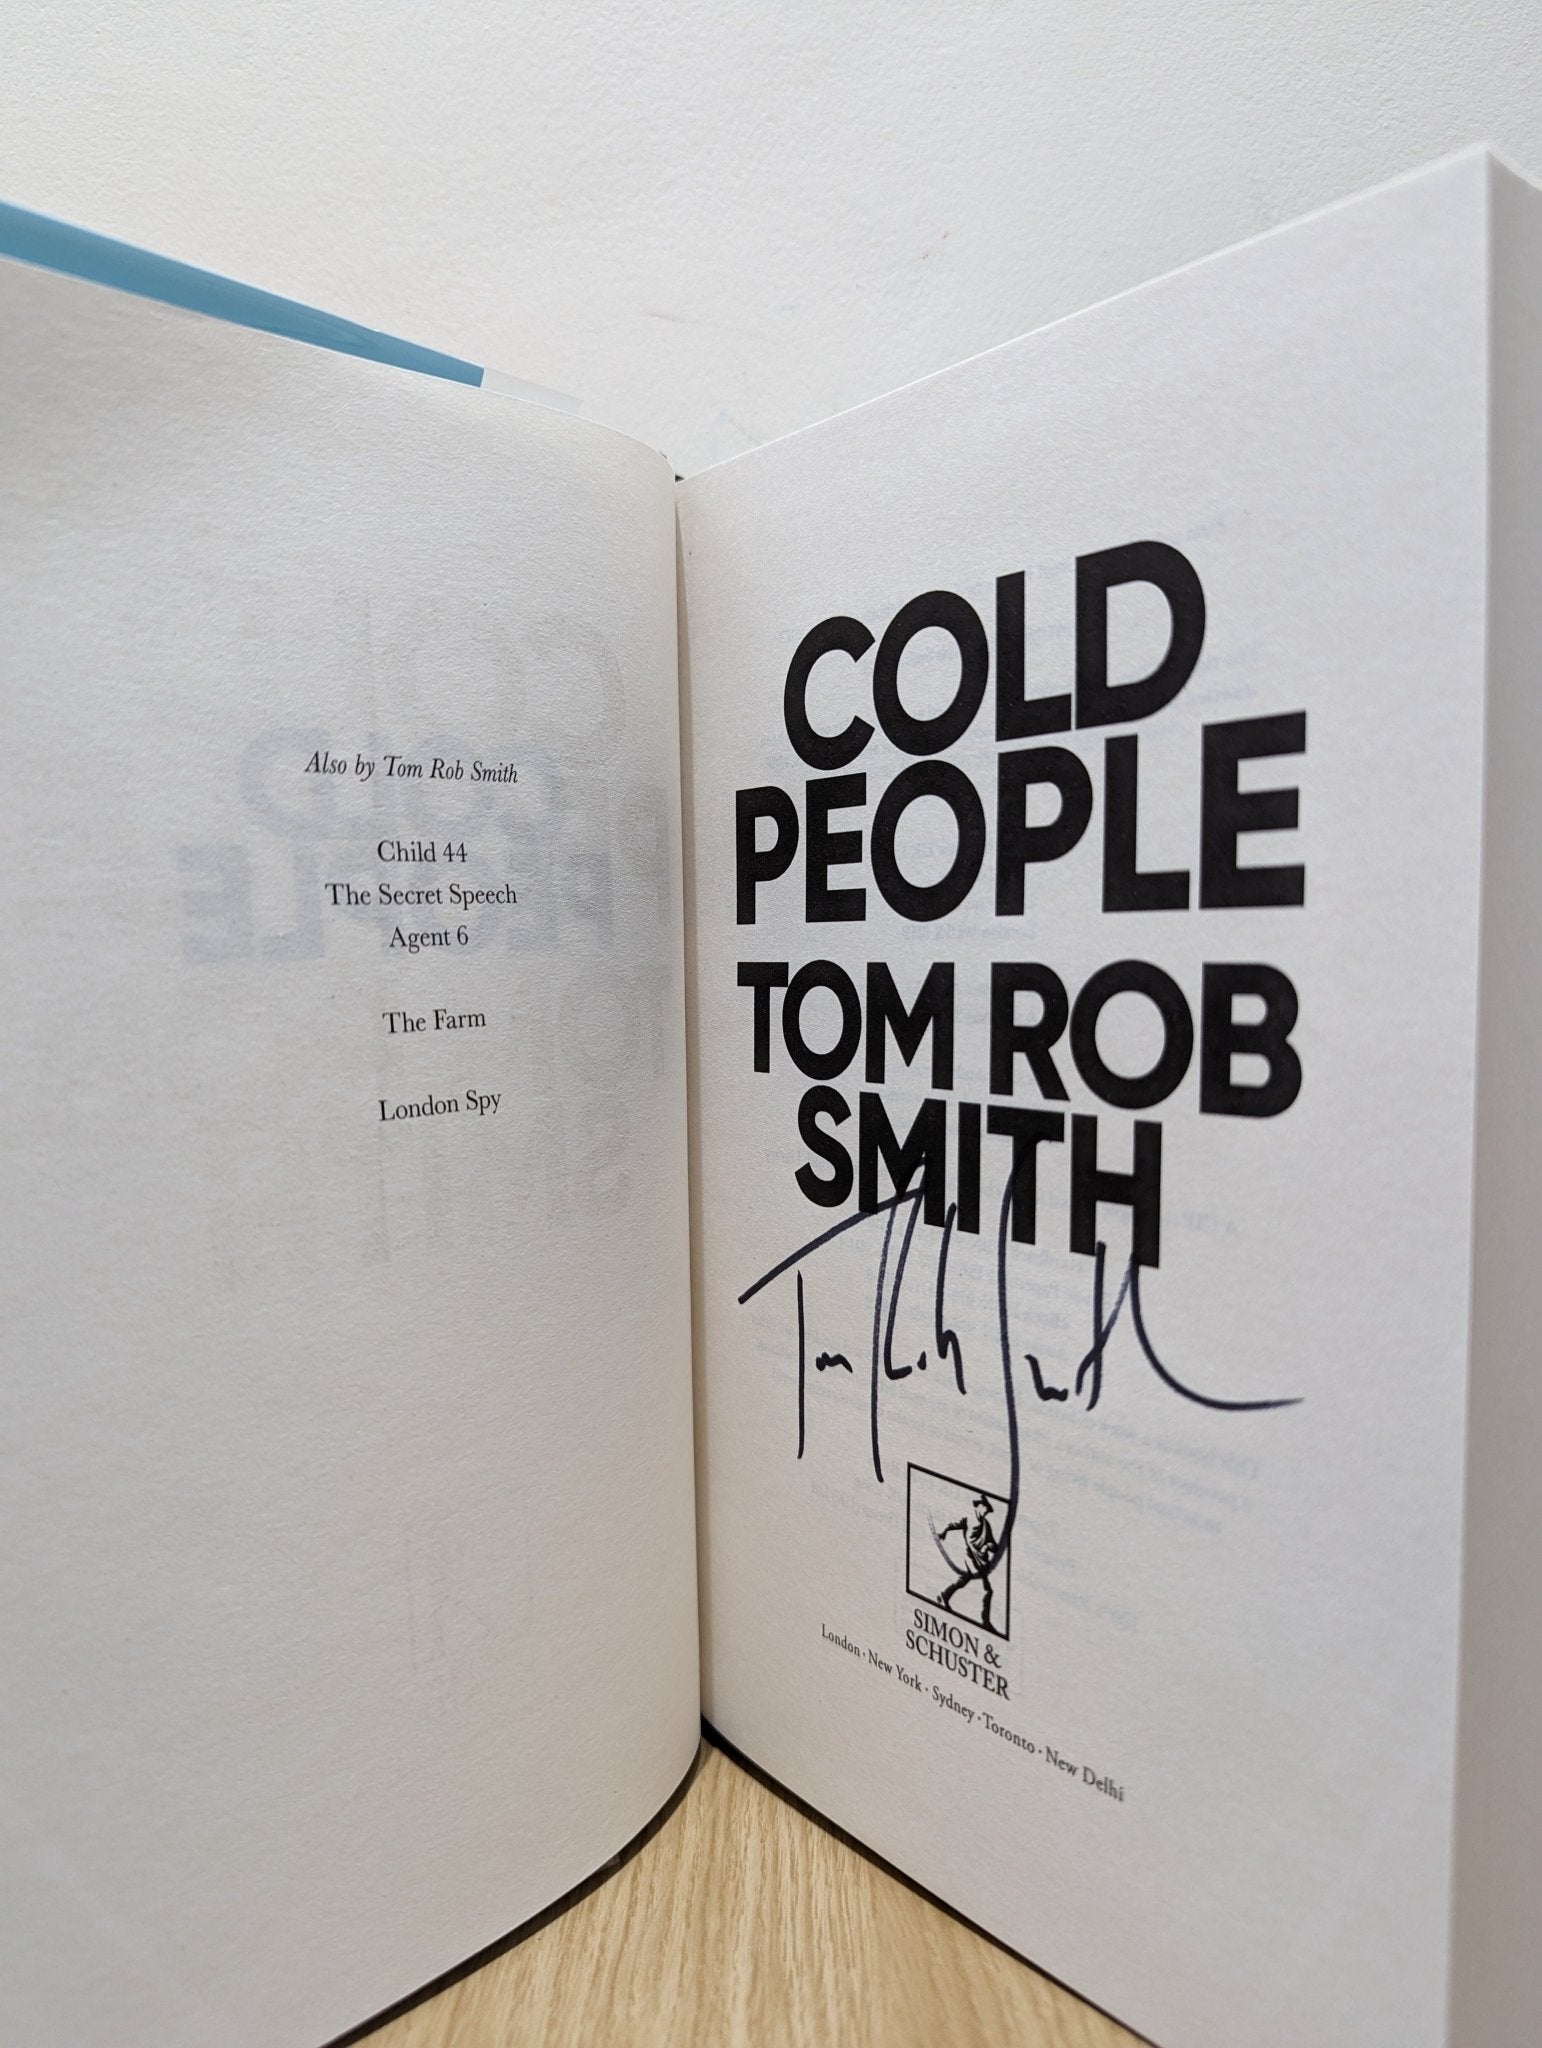 Also by Tom Rob Smith
Child 44
The Secret Speech
Agent 6
The Farm
London Spy
COLD
PEOPLE
TOM ROB
SMITH
Tom Rob Smith
SIMON &
SCHUSTER
London · New York · Sydney · Toronto · New Delhi